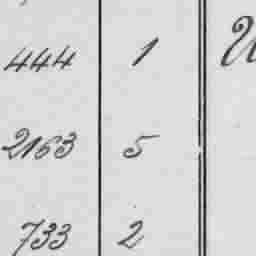 444 1
2163 5
733 2